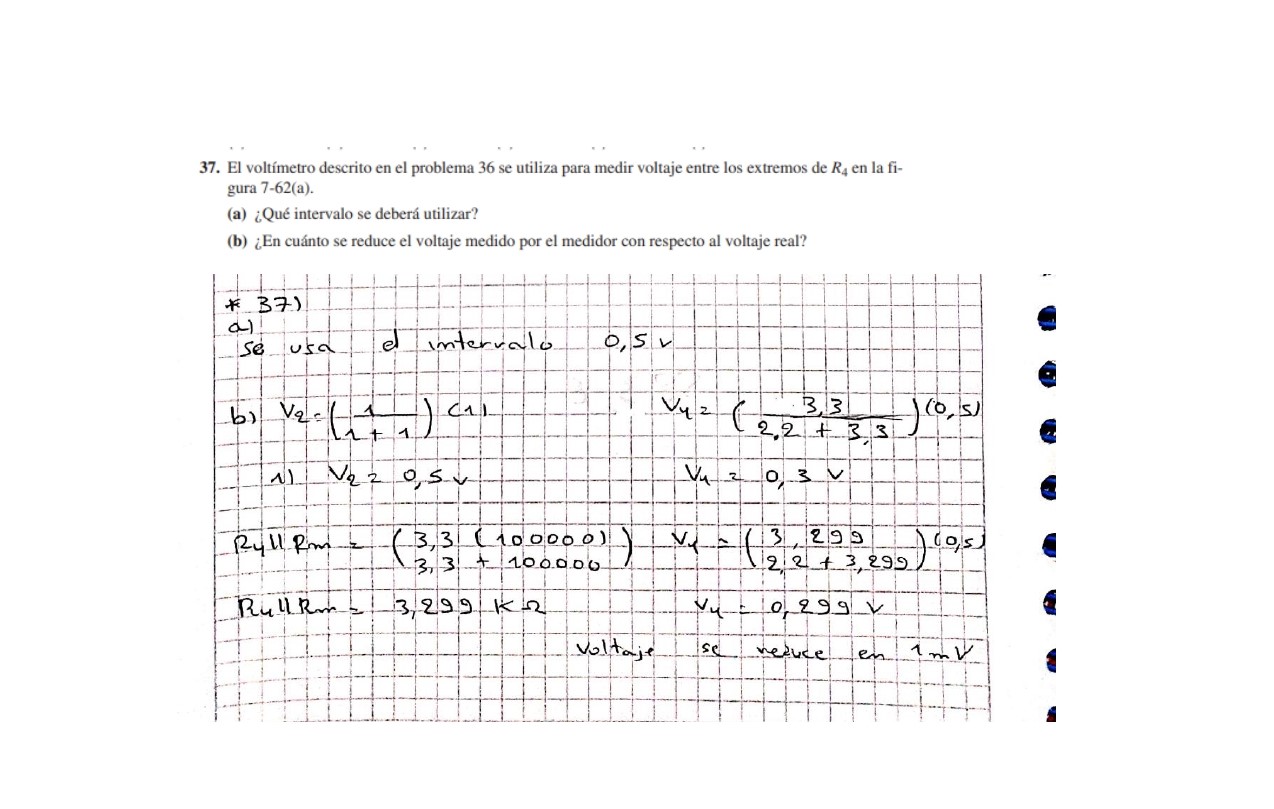 37. El voltímetro descrito en el problema 36 se utiliza para medir voltaje entre los extremos de R₄ en la fi-
gura 7-62(a).
(a) ¿Qué intervalo se deberá utilizar?
(b) ¿En cuánto se reduce el voltaje medido por el medidor con respecto al voltaje real?
* 37)
a)
Se usa el intervalo 0,5 v
b) V2 = (1 / 1 + 1) (1)
V4 = (3,3 / 2,2 + 3,3) (0,5)
1) V2 = 0,5 v
V4 = 0,3 V
R4 || Rm = (3,3 (100000) / 3,3 + 100000)
V4 = (3,299 / 2,2 + 3,299) (0,5)
R4 || Rm = 3,299 K Ω
V4 = 0,299 V
Voltaje se reduce en 1 mV